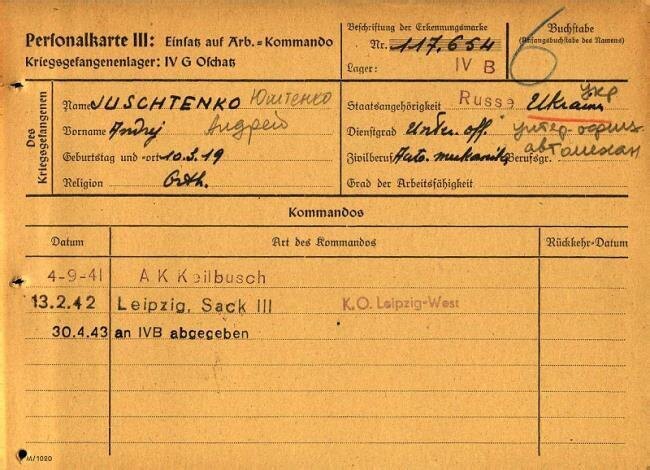 Personalkarte III: Einsatz auf Arb.=Kommando
Kriegsgefangenenlager: IV G Oschatz
Beschriftung der Erkennungsmarke
Nr. 117.654
Lager: IV B
6
Buchstabe
(Anfangsbuchstabe des Namens)
Des Kriegsgefangenen
Name JUSCHTENKO Юштенко
Vorname Andrej Андрей
Geburtstag und =ort 10.3.19
Religion Orth.
Staatsangehörigkeit Russe Ukrain укр
Dienstgrad Unter. off. унтер-офиц.
Zivilberuf Auto. mekanik Berufsgr. автомехан
Grad der Arbeitsfähigkeit
Kommandos
Datum Art des Kommandos Rückkehr=Datum
4-9-41 A K Keilbusch
13.2.42 Leipzig, Sack III K.O. Leipzig-West
30.4.43 an IVB abgegeben
M/1020